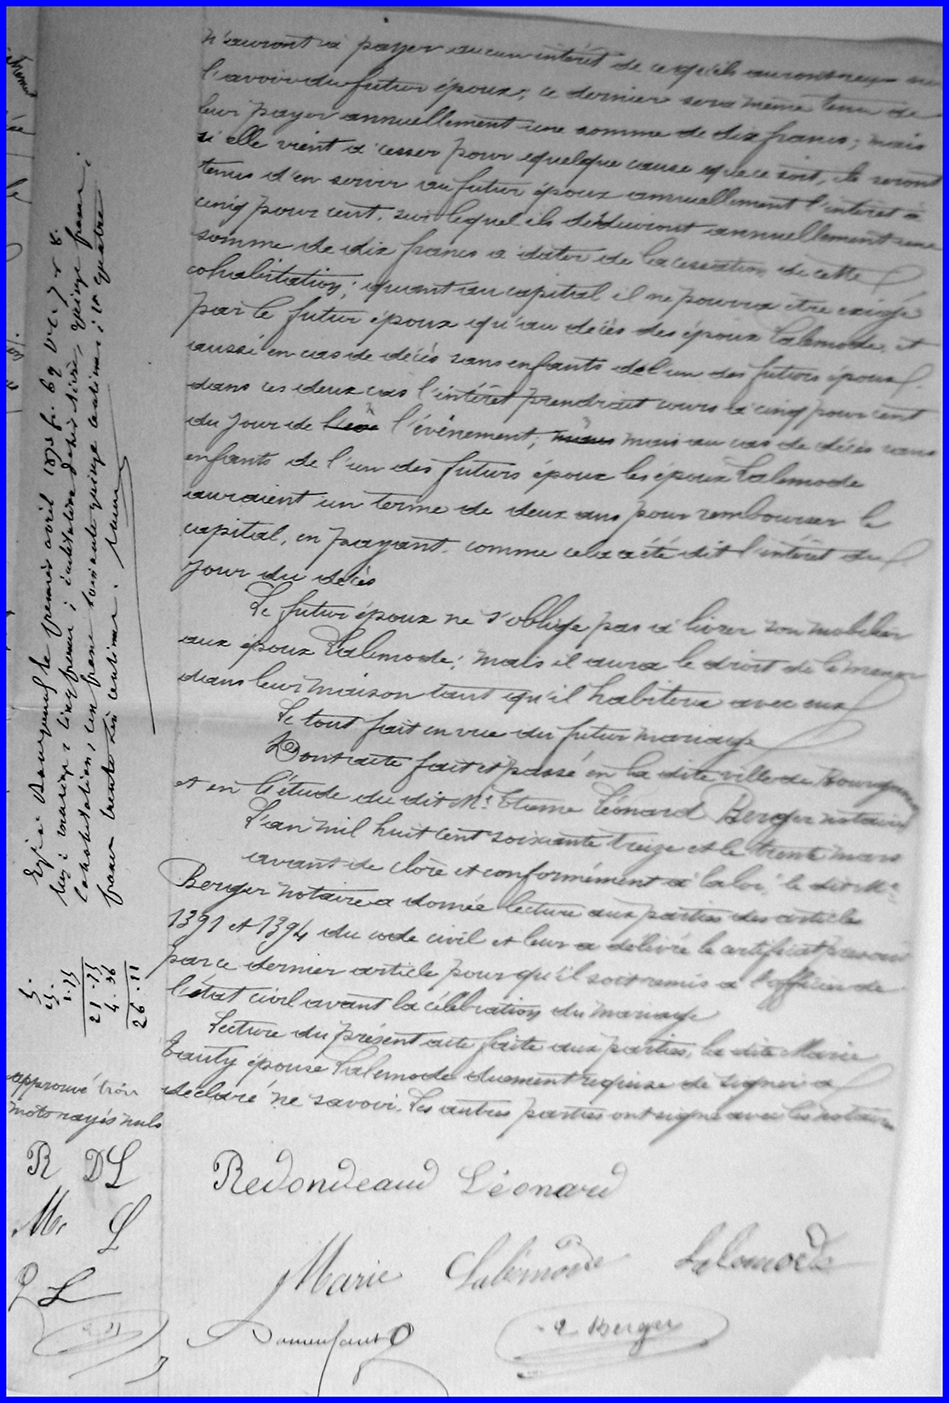 n'auront à payer aucun intérêt de ce qu'ils auront reçu
l'avoir du futur époux; ce dernier sera même tenu de
leur payer annuellement une somme de dix francs; mais
si elle vient à cesser pour quelque cause que ce soit, ils seront
tenus d'en servir au futur époux annuellement l'intérêt à
cinq pour cent, sur lequel ils déduiront annuellement une
somme de dix francs à dater de la cessation de cette
cohabitation; quant au capital il ne pourra être exigé
par le futur époux qu'au décès des époux Lalemode, et
aussi en cas de décès sans enfants de l'un des futurs époux
dans ces deux cas l'intérêt prendrait cours à cinq pour cent
du jour de l'événement, mais au cas de décès sans
enfants de l'un des futurs époux les époux Lalemode
auraient un terme de deux ans pour rembourser le
capital, en payant comme cela a été dit l'intérêt du
jour du décès
Le futur époux ne s'oblige pas à livrer son mobilier
aux époux Lalemode; mais il aura le droit de le mener
dans leur maison tant qu'il habitera avec eux
Le tout fait en vue du futur mariage
Dont acte fait et passé en la dite ville de Bourganeuf
et en l'étude du dit Me Etienne Léonard Berger notaire
L'an mil huit cent soixante treize et le trente mars
avant de clore et conformément à la loi, le dit Me
Berger notaire a donné lecture aux parties des articles
1391 et 1394 du code civil et leur a délivré le certificat prescrit
par ce dernier article pour qu'il soit remis à l'officier de
l'état civil avant la célébration du mariage
Lecture du présent acte faite aux parties, la dite Marie
Tauty épouse Lalemode duement requise de signer a
déclaré ne savoir. Les autres parties ont signé avec les notaires
approuvé trois
mots rayés nuls
R DL
M L
L
Redondeaud Léonard
Marie Lalemode Lalemode
Berger
Bourganeuf le premier avril 1873 fo. 69 Vo c. 7 et 8.
5.
15.
1.75
21.75
4.36
26.11